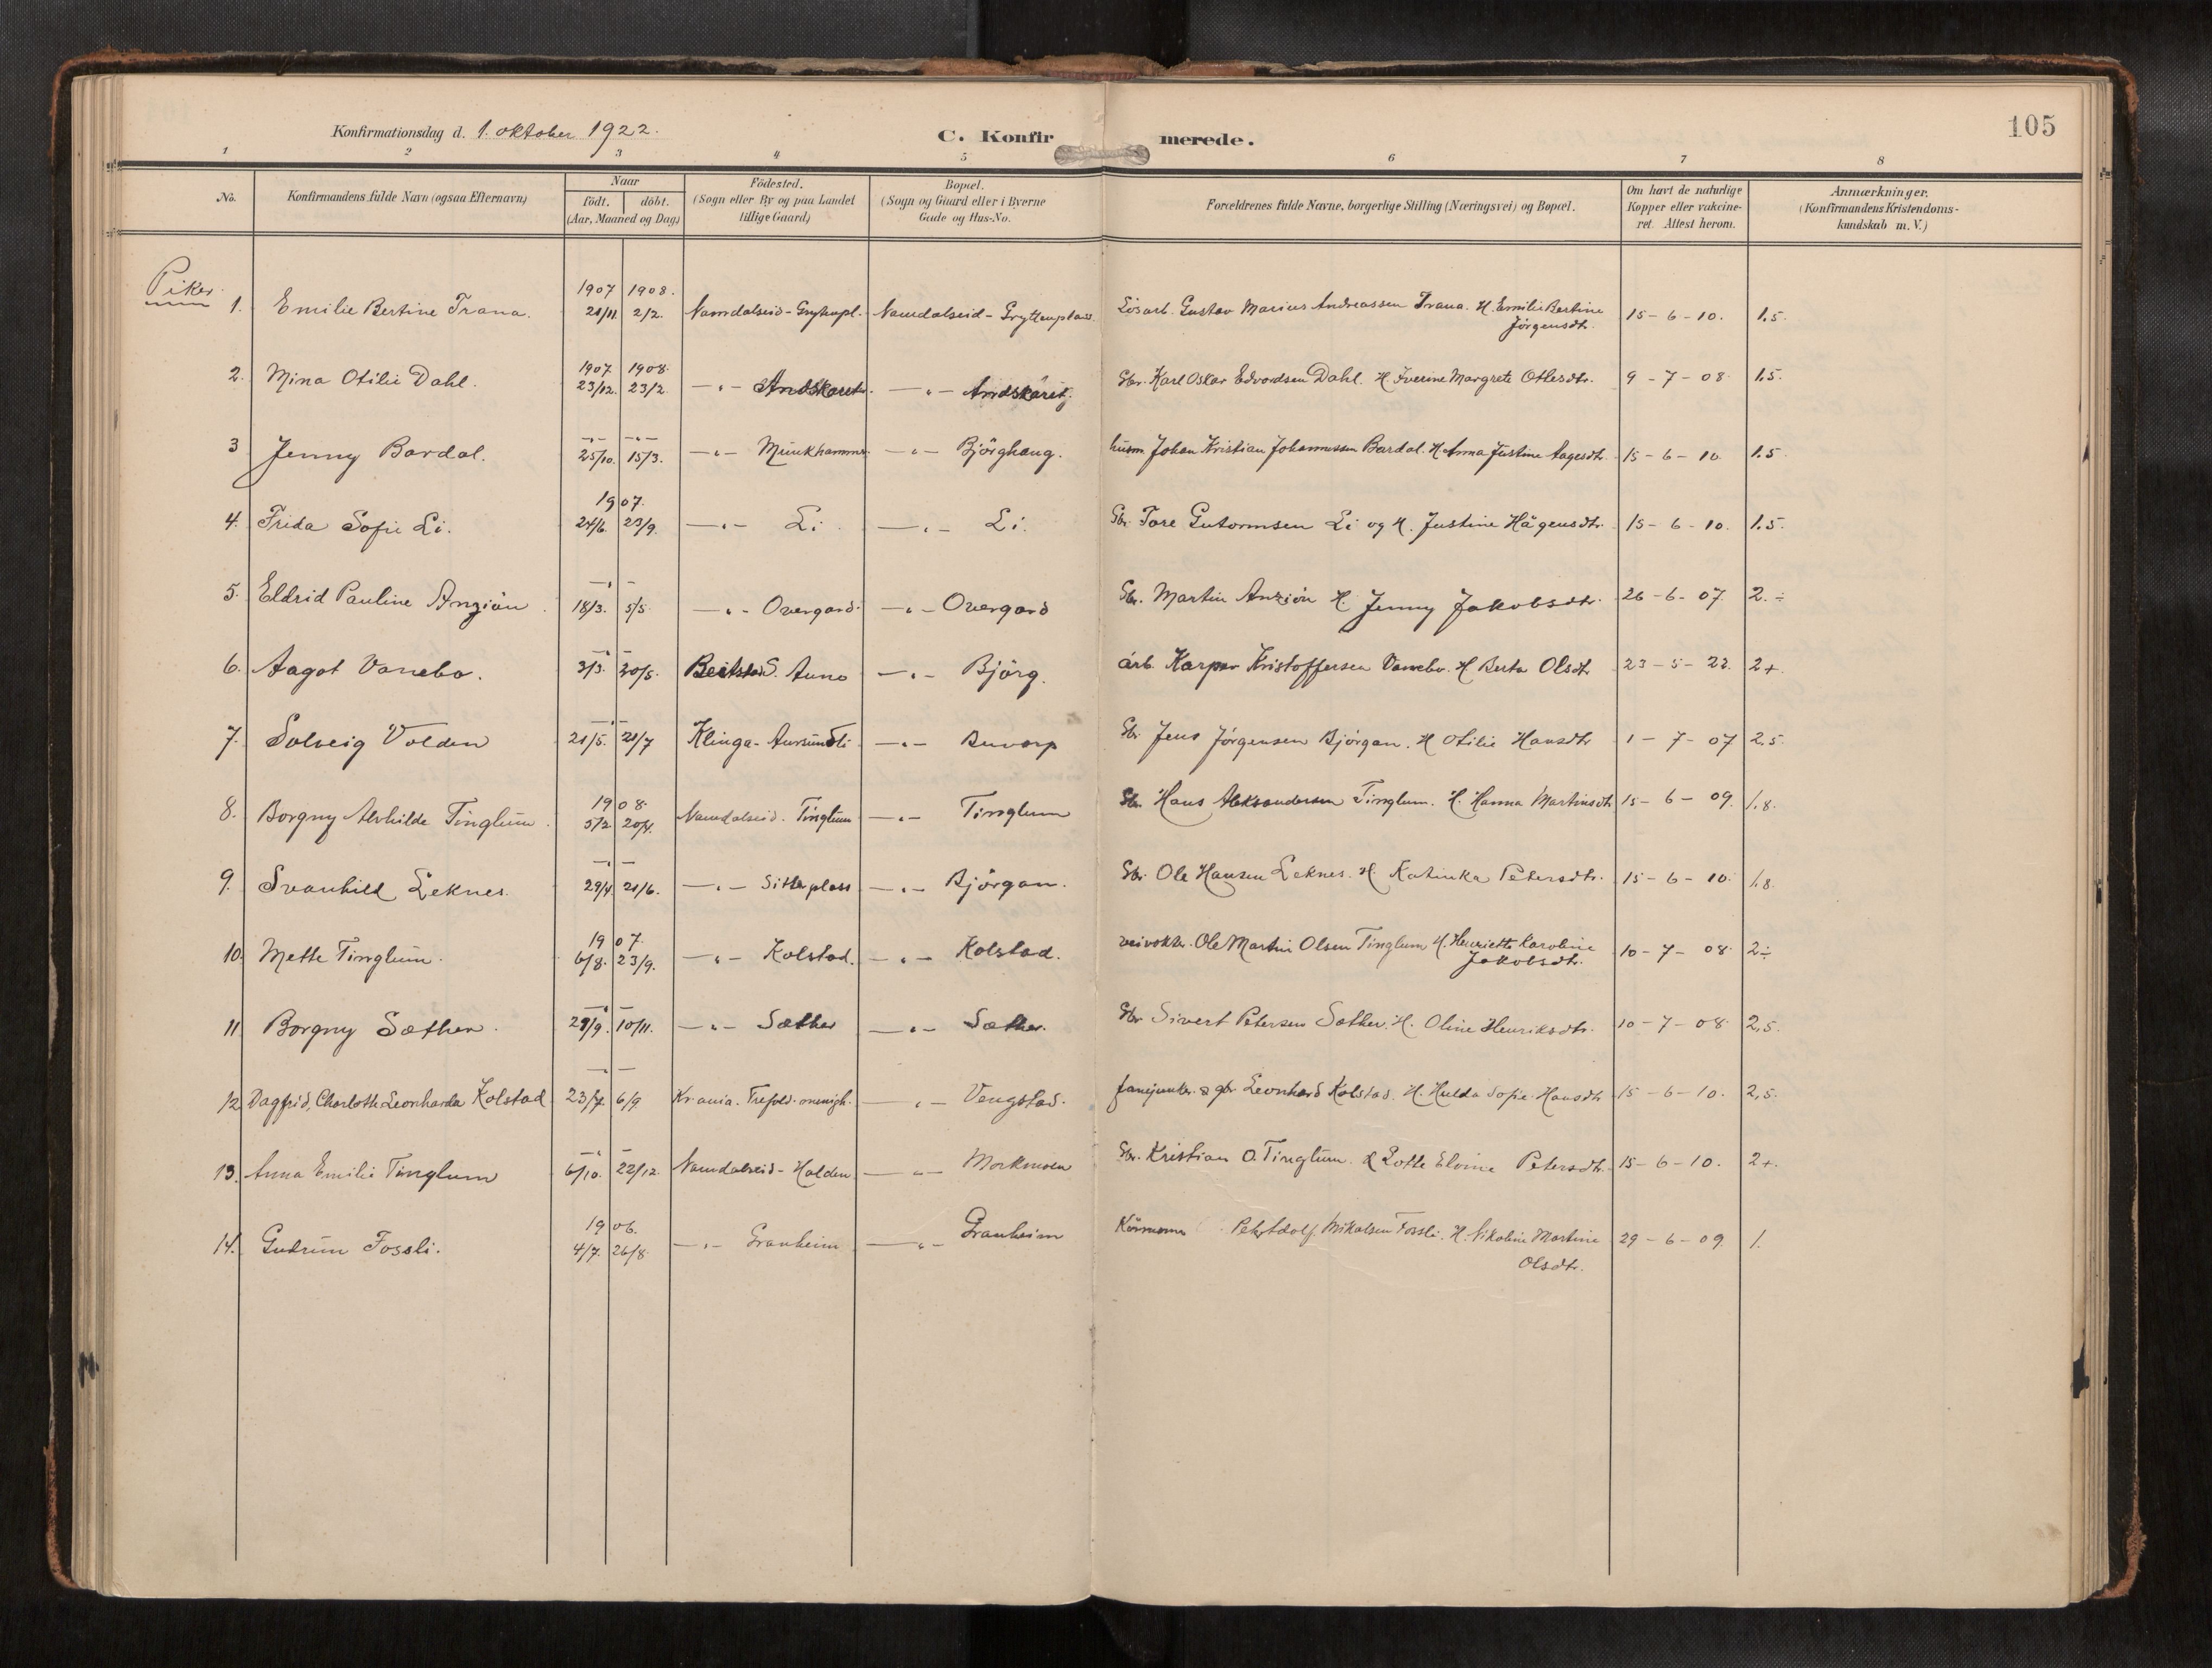 105
Konfirmationsdag d. 1. oktober 1922.
C. Konfirmerede.
1 2 3 4 5 6 7 8
No.
Konfirmandens fulde Navn (ogsaa Efternavn)
Naar
födt. döbt.
(Aar, Maaned og Dag)
Födested.
(Sogn eller By og paa Landet
tillige Gaard)
Bopæl.
(Sogn og Gaard eller i Byerne
Gade og Hus-No.
Forældrenes fulde Navne, borgerlige Stilling (Næringsvei) og Bopæl.
Om havt de naturlige
Kopper eller vakcine-
ret. Attest herom.
Anmærkninger.
(Konfirmandens Kristendoms-
kundskab m. V.)
Piker
1907 1908.
1. Emilie Bertine Trana. 21/11 2/2. Namdalseid - Grytenpl. Namdalseid - Gryttenplass Lösarb. Gustav Marius Andreassen Trana. H. Emilie Bertine 15 - 6 - 10. 1,5.
Jörgensdtr.
1907 1908.
2. Mina Otilie Dahl. 23/12. 23/2. —„— Andskaret. —„— Andskaret. Gbr. Karl Oskar Edvardsen Dahl. H. Iverine Margrete Otlesdtr. 9 - 7 - 08 1,5.
—„— —„—
3 Jenny Bardal. 25/10. 15/3. —„— Munkhammer. —„— Bjørghaug. husm. Johan Kristian Johannessen Bardal. H. Anna Justine Aagesdtr. 15 - 6 - 10 1.5
1907.
4. Frida Sofie Li. 24/6. 23/9. —„— Li. —„— Li. Gbr. Tore Gutormsen Li og H. Justine Hågensdtr. 15 - 6 - 10. 1.5.
—„—
5. Eldrid Pauline Anzión. 18/3. 5/5. —„— Overgard. —„— Overgard Gbr. Martin Anzión H. Jenny Jakobsdtr. 26 - 6 - 07. 2. ÷
—„—
6. Aagot Vanebo. 3/3. 20/5. Beitstad. Auno —„— Björg. arb. Kasper Kristoffersen Vanebo. H. Berta Olsdtr 23 - 5 - 22. 2+.
—„—
7. Solveig Volden 21/5. 21/7 Klinga - Aursundli —„— Buvarp Gbr. Jens Jörgensen Björgan. H. Otilie Hansdtr 1 - 7 - 07 2,5.
1908.
8. Borgny Alvhilde Tinglum. 5/2. 20/4. Namdalseid. Tinglum —„— Tinglum Gbr. Hans Aleksandersen Tinglum. H. Hanna Martinsdtr. 15 - 6 - 09. 1,8.
—„—
9. Svanhild Leknes. 29/4. 21/6. —„— Sitterplass —„— Björgan. Gbr. Ole Hansen Leknes. H. Katinka Petersdtr. 15 - 6 - 10. 1,8.
1907.
10. Mette Tinglum. 6/8. 23/9. —„— Kolstad. —„— Kolstad. veivokter. Ole Martin Olsen Tinglum H. Henriette Karoline 10 - 7 - 08 2÷
Jakobsdtr.
—„—
11. Borgny Sæther. 29/9. 10/11. —„— Sæther —„— Sæther. Gbr Sivert Petersen Sæther. H. Oline Henriksdtr. 10 - 7 - 08 2,5.
—„—
12. Dagfrid, Charlotte Leonharda Kolstad 23/7. 6/9. Kr.ania. Trefold. menigh. —„— Vengstad. fanejunker. & gbr. Leonhard Kolstad. H. Hulda Sofie Hansdtr 15 - 6 - 10. 2,5.
—„—
13. Anna Emilie Tinglum 6/10. 22/12. Namdalseid - Halden —„— Morkmoen Gbr. Kristian O. Tinglum. & Lotte Elvine Petersdtr. 15 - 6 - 10. 2+.
1906.
14. Gudrun Fossli. 4/7. 26/8. —„— Granheim —„— Granheim Peter Adolf Mikalsen Fossli. H. Nikoline Martine 29 - 6 - 09. 1.
Olsdtr.